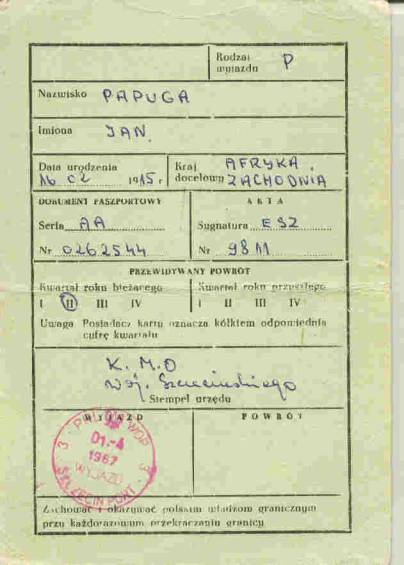 Rodzaj wyjazdu P
Nazwisko PAPUGA
Imiona JAN
Data urodzenia 16 02 1915 r.
Kraj docelowy AFRYKA ZACHODNIA
DOKUMENT PASZPORTOWY
Seria AA
Nr 0262544
AKTA
Sygnatura ESZ
Nr 9811
PRZEWIDYWANY POWRÓT
Kwartał roku bieżącego
I II III IV
Kwartał roku przyszłego
I II III IV
Uwaga Posiadacz karty oznacza kółkiem odpowiednią
cyfrę kwartału
K. M. O
Woj. Szczecińskiego
Stempel urzędu
WYJAZD
POWRÓT
01.-4
1967
WYJAZD
SZCZECIN PORT
Zachować i okazywać polskim władzom granicznym
przy każdorazowym przekraczaniu granicy